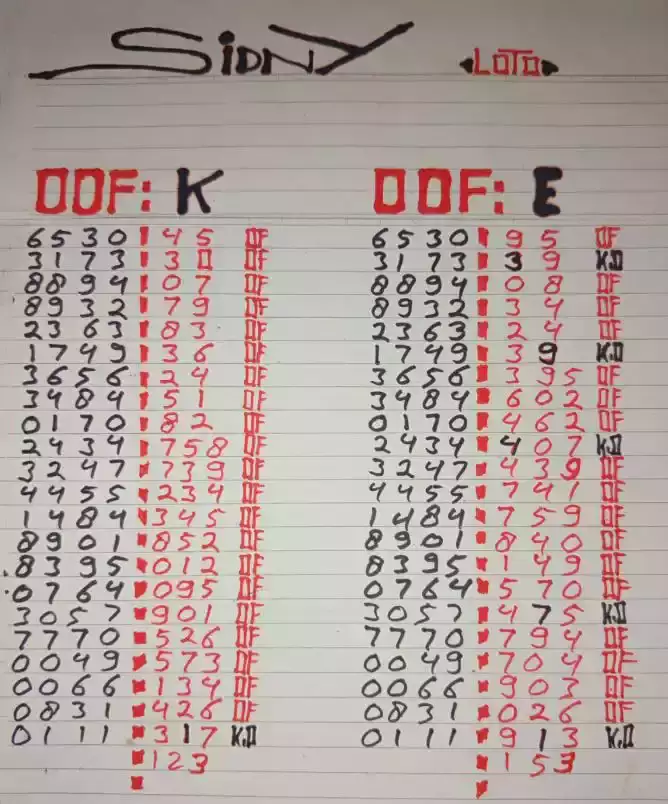 SIDNY LOTO
OOF: K OOF: E
6530 45 OF 6530 95 OF
3173 30 OF 3173 39 K.O
8894 07 OF 8894 08 OF
8932 79 OF 8932 34 OF
2363 83 OF 2363 24 OF
1749 36 OF 1749 39 K.O
3656 24 OF 3656 395 OF
3484 51 OF 3484 602 OF
0170 82 OF 0170 462 OF
2434 758 OF 2434 407 K.O
3247 739 OF 3247 439 OF
4455 234 OF 4455 741 OF
1484 345 OF 1484 759 OF
8901 852 OF 8901 840 OF
8395 012 OF 8395 149 OF
0764 095 OF 0764 570 OF
3057 901 OF 3057 475 K.O
7770 526 OF 7770 794 OF
0049 573 OF 0049 704 OF
0066 134 OF 0066 903 OF
0831 426 OF 0831 026 OF
0111 317 K.O 0111 913 K.O
123 153